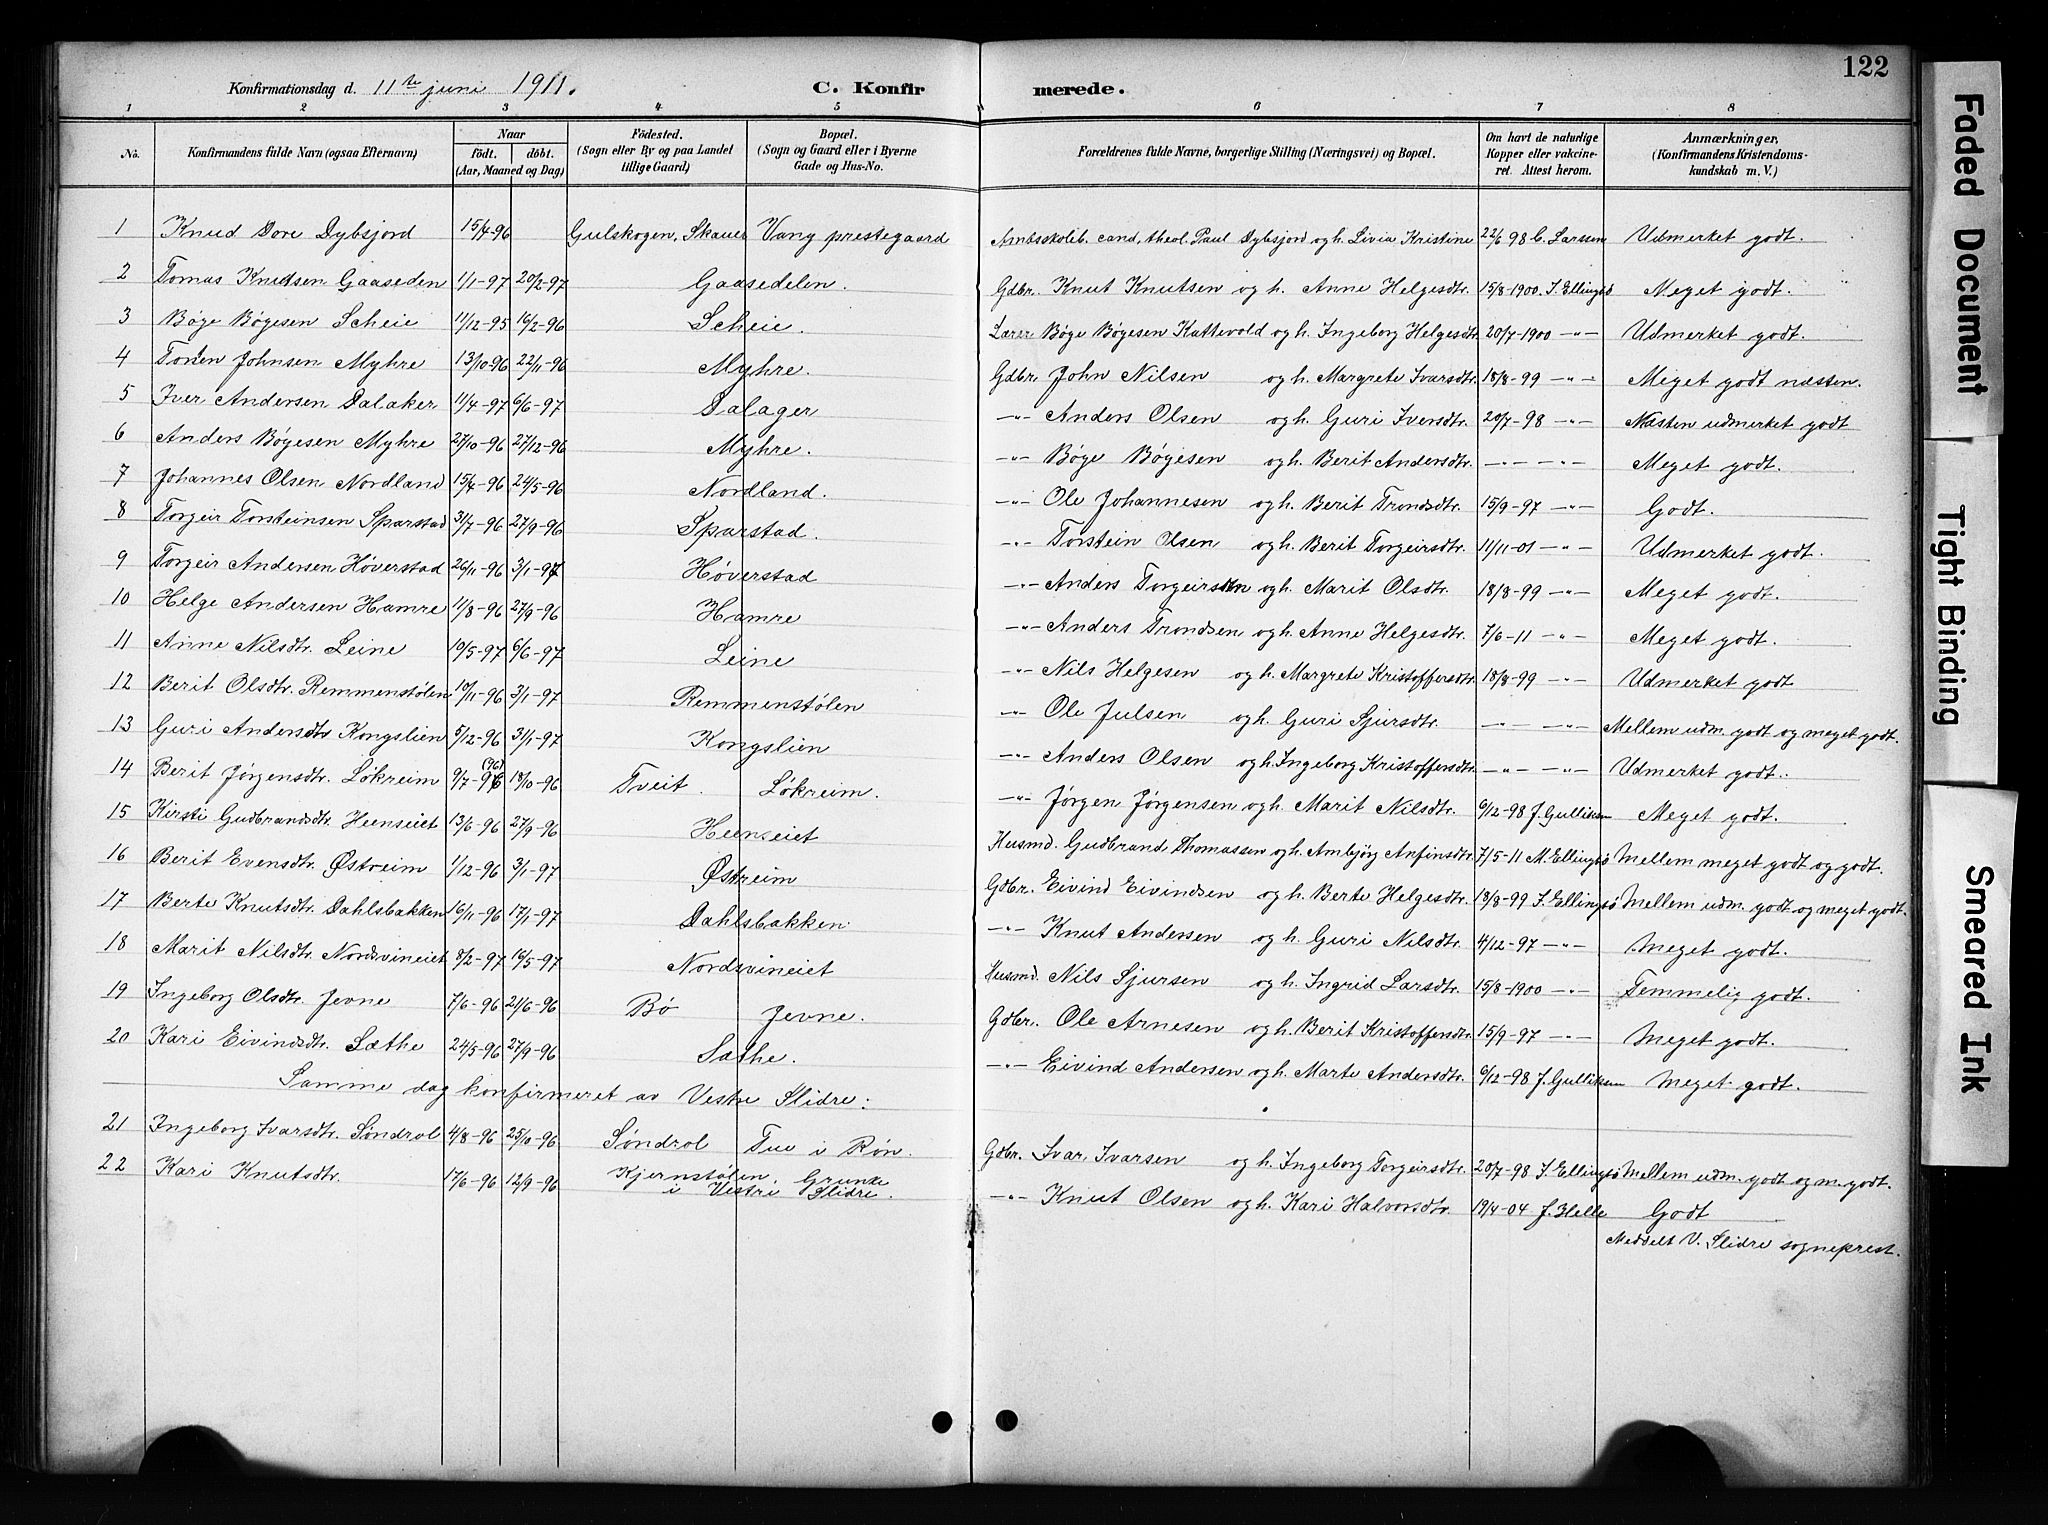 122
Konfirmationsdag d. 11te juni 1911. C. Konfirmerede.
1 2 3 4 5 6 7 8
No. Konfirmandens fulde Navn (ogsaa Efternavn) Naar födt. döbt. (Aar, Maaned og Dag) Födested. (Sogn eller By og paa Landet tillige Gaard) Bopæl. (Sogn og Gaard eller i Byerne Gade og Hus-No. Forældrenes fulde Navne, borgerlige Stilling (Næringsvei) og Bopæl. Om havt de naturlige Kopper eller vakcineret. Attest herom. Anmærkninger, (Konfirmandens Kristendomskundskab m. V.)
1 Knud Dore Dybsjord 15/4-96 Gulskogen, Skauer Vang prestegaard Amtsskoleb. cand. theol. Paul Dybsjord og h. Livia Kristine 22/6 98 C. Larsen Udmerket godt.
2 Tomas Knutsen Gaaseden 1/1-97 20/2-97 Gaasedelen. Gdbr. Knut Knutsen og h. Anne Helgesdtr. 15/8-1900. J. Ellingbø Meget godt.
3 Bøge Bøgesen Scheie 11/12-95 16/2-96 Scheie. Lærer Bøge Bøgesen Kattevold og h. Ingeborg Helgesdtr. 20/7-1900 -"- Udmerket godt.
4 Johnsen Myhre 13/10-96 22/11-96 Myhre. Gdbr. John Nilsen og h. Margrete Ivarsdtr. 18/8-99 -"- Meget godt næsten.
5 Iver Andersen Dalaker 11/4-97 6/6-97 Dalager -"- Anders Olsen og h. Guri Iversdtr. 20/7-98 -"- Næsten udmerket godt
6 Anders Bøgesen Myhre 27/10-96 27/12-96 Myhre. -"- Bøge Bøgesen og h. Berit Andersdtr. -"- -"- Meget godt.
7 Johannes Olsen Nordland 15/4-96 24/5-96 Nordland. -"- Ole Johannesen og h. Berit Trondsdtr. 15/9-97 -"- Godt.
8 Torgeir Torsteinsen Sparstad 31/7-96 27/9-96 Sparstad. -"- Torstein Olsen og h. Berit Torgeirsdtr. 11/11-01 -"- Udmerket godt.
9 Torgeir Andersen Høverstad 26/11-96 3/1-97 Høverstad -"- Anders Torgeirsen og h. Marit Olsdtr. 18/8-99 -"- Meget godt.
10 Helge Andersen Hamre 11/8-96 27/9-96 Hamre -"- Anders Trondsen og h. Anne Helgesdtr. 7/6-11 -"- Meget godt.
11 Anne Nilsdtr. Leine 10/5-97 6/6-97 Leine -"- Nils Helgesen og h. Margrete Kristoffersdtr. 18/8-99 -"- Udmerket godt
12 Berit Olsdtr. Remmenstølen 10/11-96 3/1-97 Remmenstølen -"- Ole Julsen og h. Guri Sjursdtr. -"- -"- Mellem udm. godt og meget godt.
13 Guri Andersdtr Kongslien 5/12-96 31/1-97 Kongslien -"- Anders Olsen og h. Ingeborg Kristoffersdtr. -"- -"- Udmerket godt.
14 Berit Jørgensdtr. Løkreim 9/7-96 (96) 18/10-96 Tveit. Løkreim. -"- Jørgen Jørgensen og h. Marit Nilsdtr. 6/12-98 J. Gulliksen Meget godt.
15 Kirsti Gudbrandsdtr. Heenseiet 13/6-96 27/9-96 Heenseiet Husmd. Gudbrand Thomassen og h. Ambjørg Anfinsdtr. 7/5-11 M. Ellingbø Mellem meget godt og godt.
16 Berit Evensdtr. Østreim 1/12-96 3/1-97 Østreim Gdbr. Eivind Eivindsen og h. Berte Helgesdtr. 18/8-99 J. Ellingbø Mellem udm. godt og meget godt.
17 Berte Knutsdtr. Dahlsbakken 16/11-96 17/1-97 Dahlsbakken. -"- Knut Andersen og h. Guri Nilsdtr. 4/12-97 -"- Meget godt.
18 Marit Nilsdtr. Nordsvineiet 8/2-97 16/5-97 Nordsvineiet Husmd. Nils Sjursen og h. Ingrid Larsdtr. 15/8-1900 -"- Temmelig godt.
19 Ingeborg Olsdtr. Jevne 7/6-96 21/6-96 Bø Jevne. Gdbr. Ole Arnesen og h. Berit Kristoffersdtr. 15/9-97 -"- Meget godt.
20 Kari Eivindsdtr. Sæthe 24/5-96 27/9-96 Sæthe. -"- Eivind Andersen og h. Marte Andersdtr. 6/12-98 J. Gulliksen Meget godt.
Samme dag konfirmeret av Vestre Slidre:
21 Ingeborg Ivarsdtr. Søndrol 4/8-96 25/10-96 Søndrol Tue i Røn. Gdbr. Ivar Ivarsen og h. Ingeborg Torgeirsdtr. 20/7-98 J. Ellingbø Mellem udm. godt og m. godt.
22 Kari Knutsdtr. 17/6-96 12/9-96 Kjernstølen, Grunke i Vestre Slidre. -"- Knut Olsen og h. Kari Halvorsdtr. 19/4-04 J. Helle Godt
Meddelt V. Slidre sogneprest.
Faded Document
Tight Binding
Smeared Ink